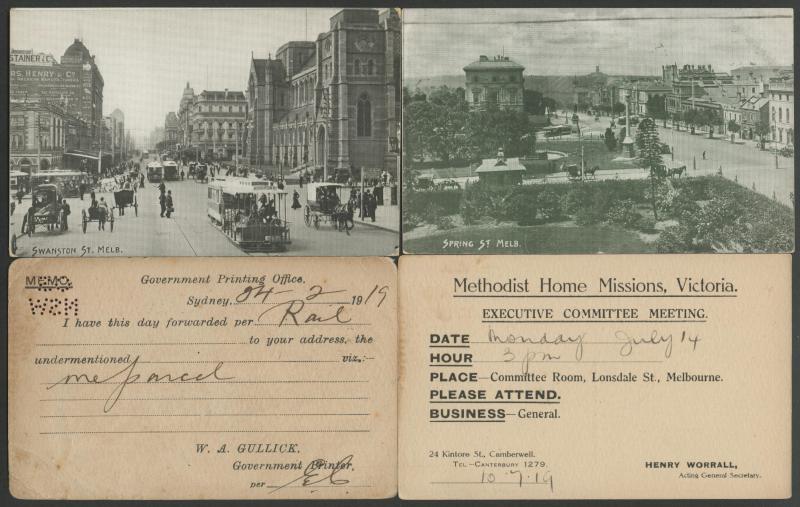 STAINER &
RS. HENRY & Co
SWANSTON ST. MELB.
SPRING ST MELB.
MEMO.
NSW
Government Printing Office,
Sydney, 24-2 1919
I have this day forwarded per Rail
to your address, the
undermentioned viz.:—
one parcel
W. A. GULLICK,
Government Printer,
per
Methodist Home Missions, Victoria.
EXECUTIVE COMMITTEE MEETING.
DATE Monday July 14
HOUR 3 pm
PLACE—Committee Room, Lonsdale St., Melbourne.
PLEASE ATTEND.
BUSINESS—General.
24 Kintore St., Camberwell.
TEL—CANTERBURY 1279.
10.7.19
HENRY WORRALL,
Acting General Secretary.